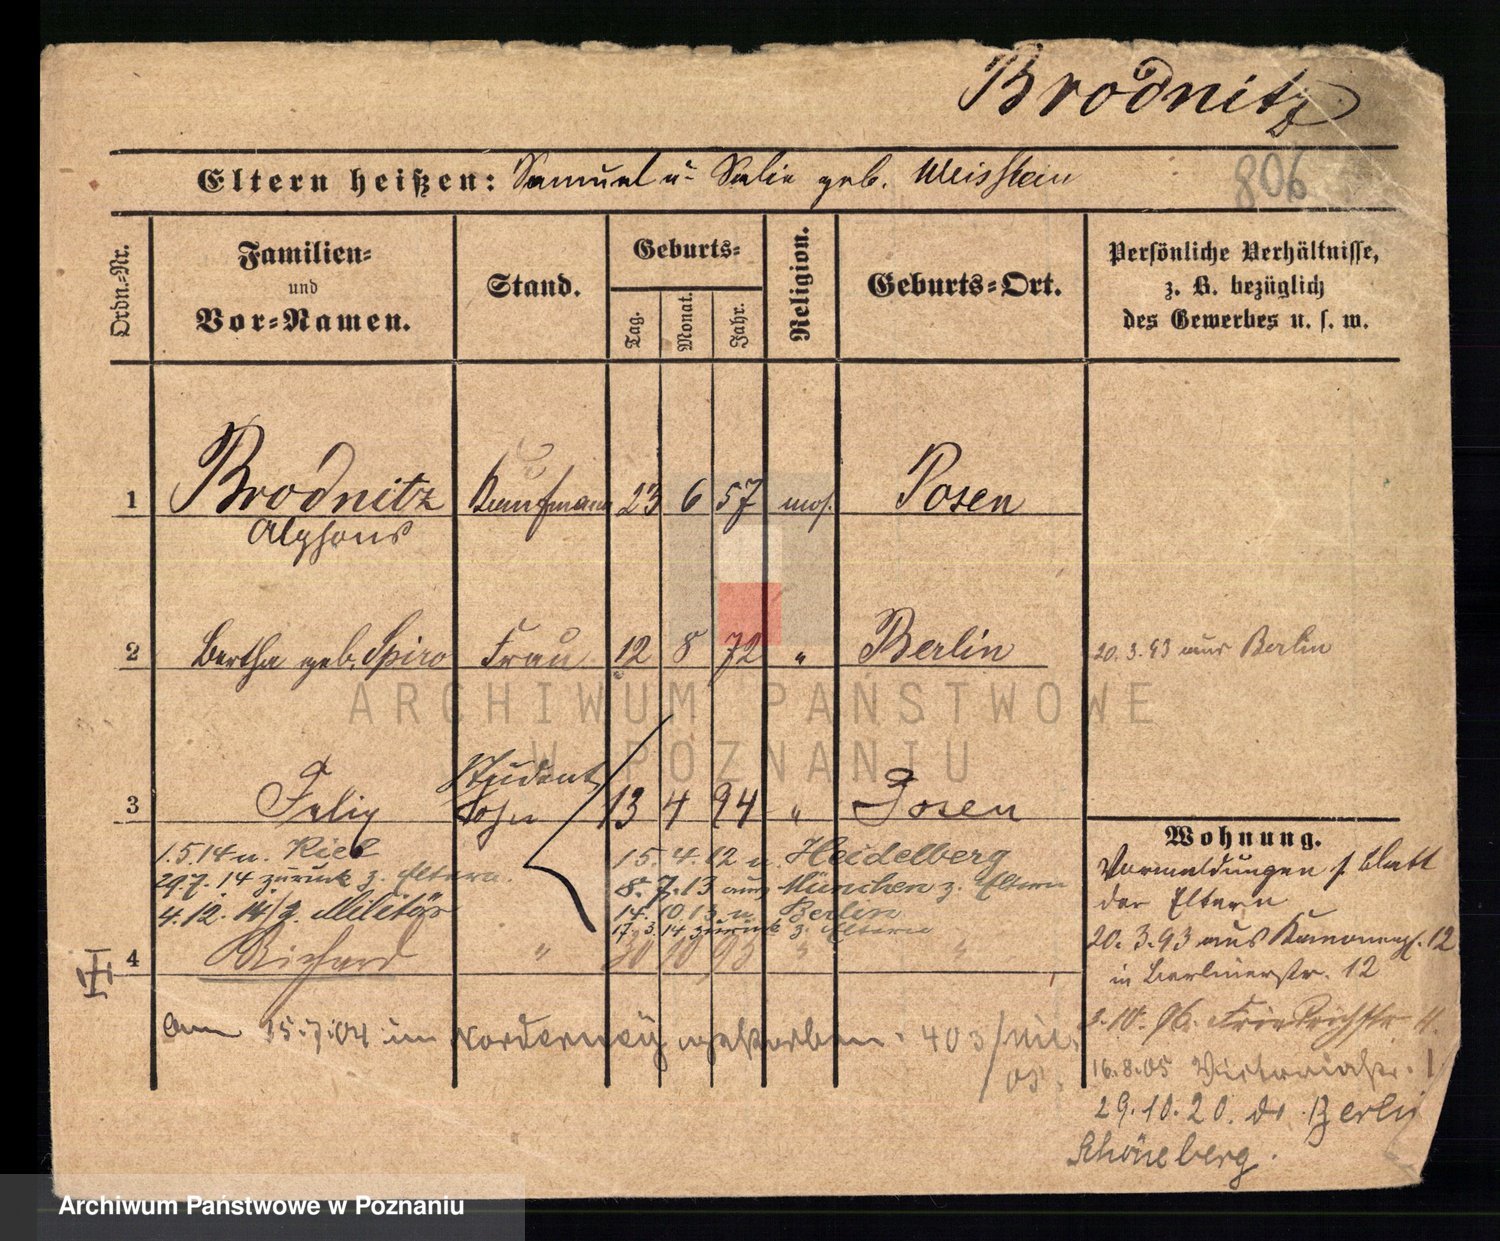 Brodnitz
806
Eltern heißen: Samuel u. Salie geb. Weisstein
Ordn.-Nr.
Familien-
und
Vor-Namen.
Stand.
Geburts-
Tag.
Monat.
Jahr.
Religion.
Geburts-Ort.
Persönliche Verhältnisse,
z. B. bezüglich
des Gewerbes u. s. w.
1 Brodnitz Kaufmann 23 6 57 mos. Posen
Alphons
2 Bertha geb. Spiro Frau 12 8 72 " Berlin 20.3.93 aus Berlin
ARCHIWUM PAŃSTWOWE
W POZNANIU
Student
3 Felix Sohn 13 4 94 " Posen
1.5.14 n. Kiel
29.7.14 zurück z. Eltern.
4.12.14 z. Militär
15.4.12 n. Heidelberg
8.7.13 aus München z. Eltern
14.10.13 n. Berlin
17.3.14 zurück z. Eltern
4 Richard " 30 10 95 " "
am 15.7.04 in Norderney gestorben. 403/
05.
Wohnung.
Vormeldungen s. Blatt
der Eltern
20.3.93 aus Kanonenpl. 12
in Berlinerstr. 12
2.10.96. Friedrichstr 4.
16.8.05 Victoriastr. 1
29.10.20. do. Berlin
Schöneberg.
Archiwum Państwowe w Poznaniu